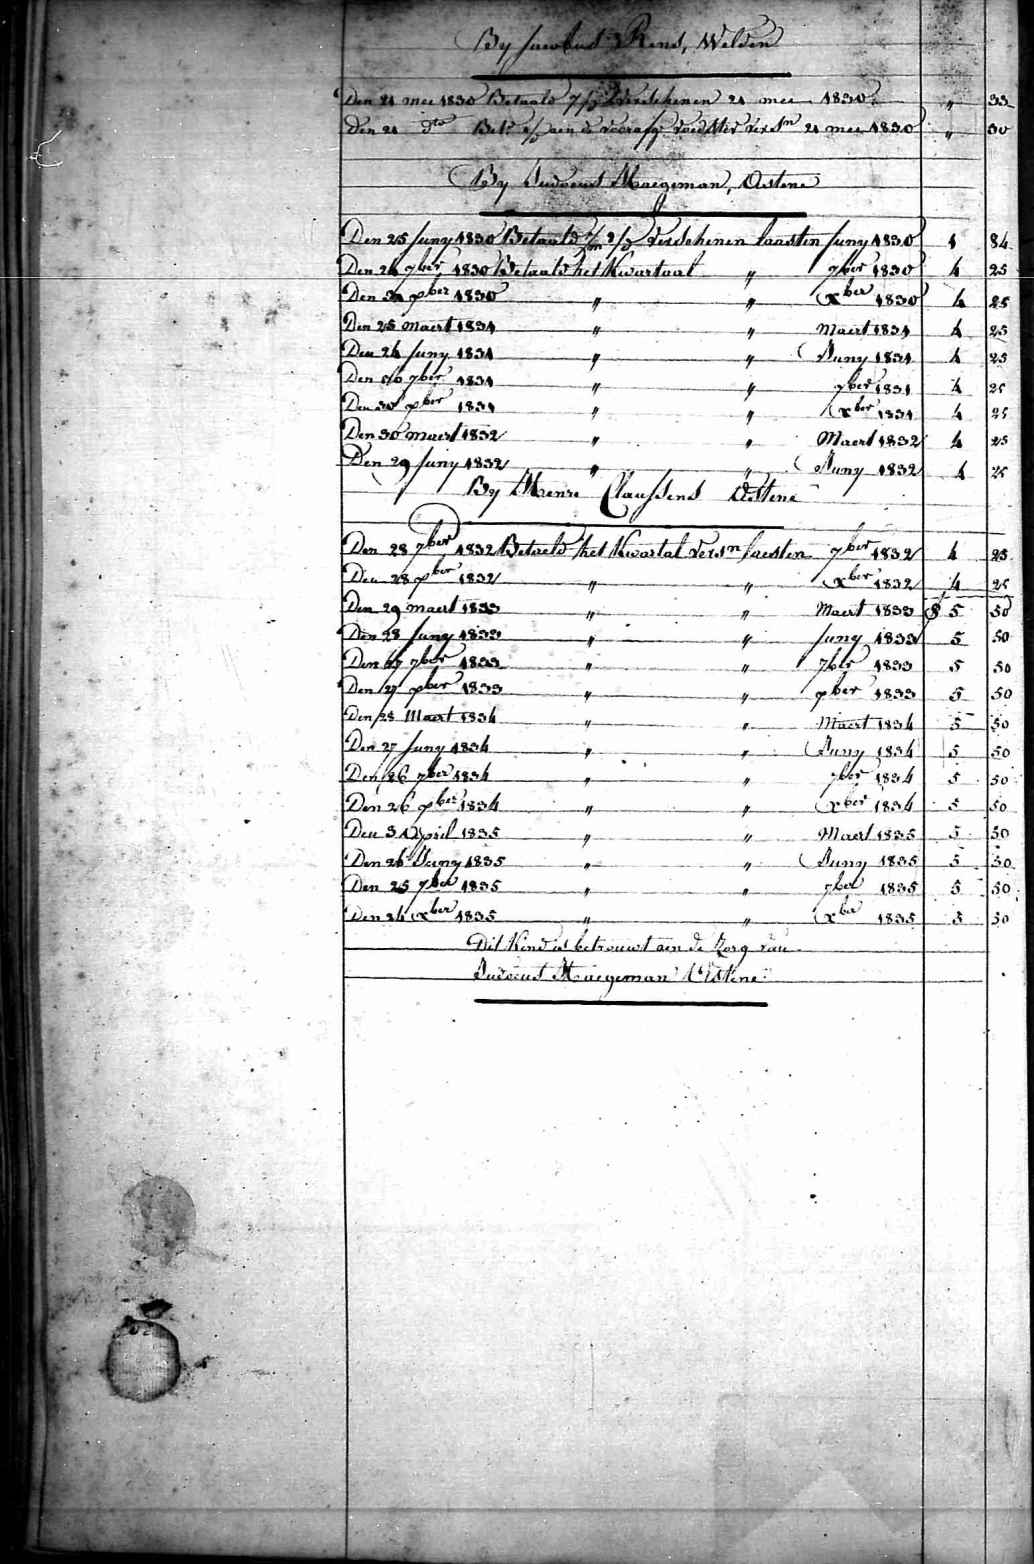 By Jacobus Rens, Welden
Den 21 mei 1830 Betaald 7/m verschenen 21 mei 1830 " 33
Den 21 dto Bete aen de voorafge voedster versn 21 mei 1830 " 30
By Judocus Maegeman, Oostene
Den 25 Juny 1830 Betaald verschenen laasten Juny 1830 1 84
Den 24 7ber 1830 Betaald het Kwartaal " 7ber 1830 4 25
Den 31 xber 1830 " " xber 1830 4 25
Den 25 Maert 1831 " " Maert 1831 4 25
Den 24 Juny 1831 " " Juny 1831 4 25
Den 7ber 1831 " " 7ber 1831 4 25
Den 30 xber 1831 " " xber 1831 4 25
Den 30 Maert 1832 " " Maert 1832 4 25
Den 29 Juny 1832 " " Juny 1832 4 25
By Claussens Oostene
Den 28 7ber 1832 Betaeld het Kwartal versn laesten 7ber 1832 4 25
Den 28 xber 1832 " " xber 1832 4 25
Den 29 maert 1833 " " Maert 1833 5 50
Den 28 Juny 1833 " " Juny 1833 5 50
Den 27 7ber 1833 " " 7ber 1833 5 50
Den 27 xber 1833 " " xber 1833 5 50
Den 28 Maert 1834 " " Maert 1834 5 50
Den 27 Juny 1834 " " Juny 1834 5 50
Den 26 7ber 1834 " " 7ber 1834 5 50
Den 26 xber 1834 " " xber 1834 5 50
Den 3 April 1835 " " Maert 1835 5 50
Den 26 Juny 1835 " " Juny 1835 5 50
Den 25 7ber 1835 " " 7ber 1835 5 50
Den 24 xber 1835 " " xber 1835 5 50
Dit Kind is betrouwt aen de Zorg van
Judocus Maegeman Oostene